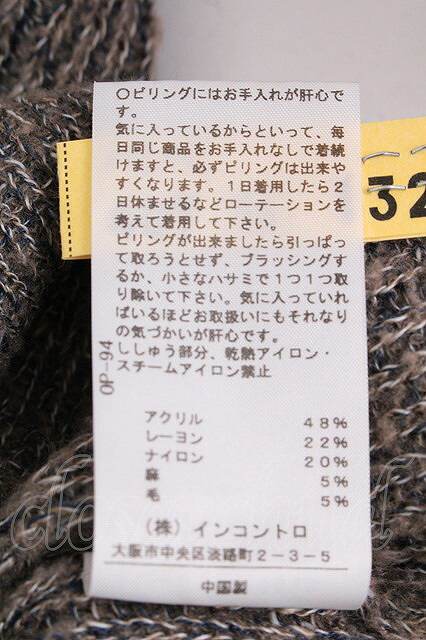 〇ピリングにはお手入れが肝心で
す。
気に入っているからといって、毎
日同じ商品をお手入れなしで着続
けますと、必ずピリングは出来や
すくなります。1日着用したら2
日休ませるなどローテーションを
考えて着用して下さい。
ピリングが出来ましたら引っぱっ
て取ろうとせず、ブラッシングす
るか、小さなハサミで1つ1つ取
り除いて下さい。気に入っていれ
ばいるほどお取扱いにもそれなり
の気づかいが肝心です。
ししゅう部分、乾熱アイロン・
スチームアイロン禁止
OP-94
アクリル 48%
レーヨン 22%
ナイロン 20%
麻 5%
毛 5%
(株)インコントロ
大阪市中央区淡路町2-3-5
中国製
32